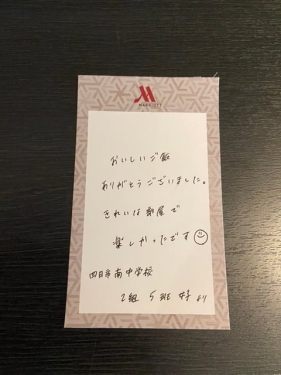 MARRIOTT
おいしいご飯
ありがとうございました。
きれいな部屋で
楽しかったです
四日市南中学校
2組 5班 女子より